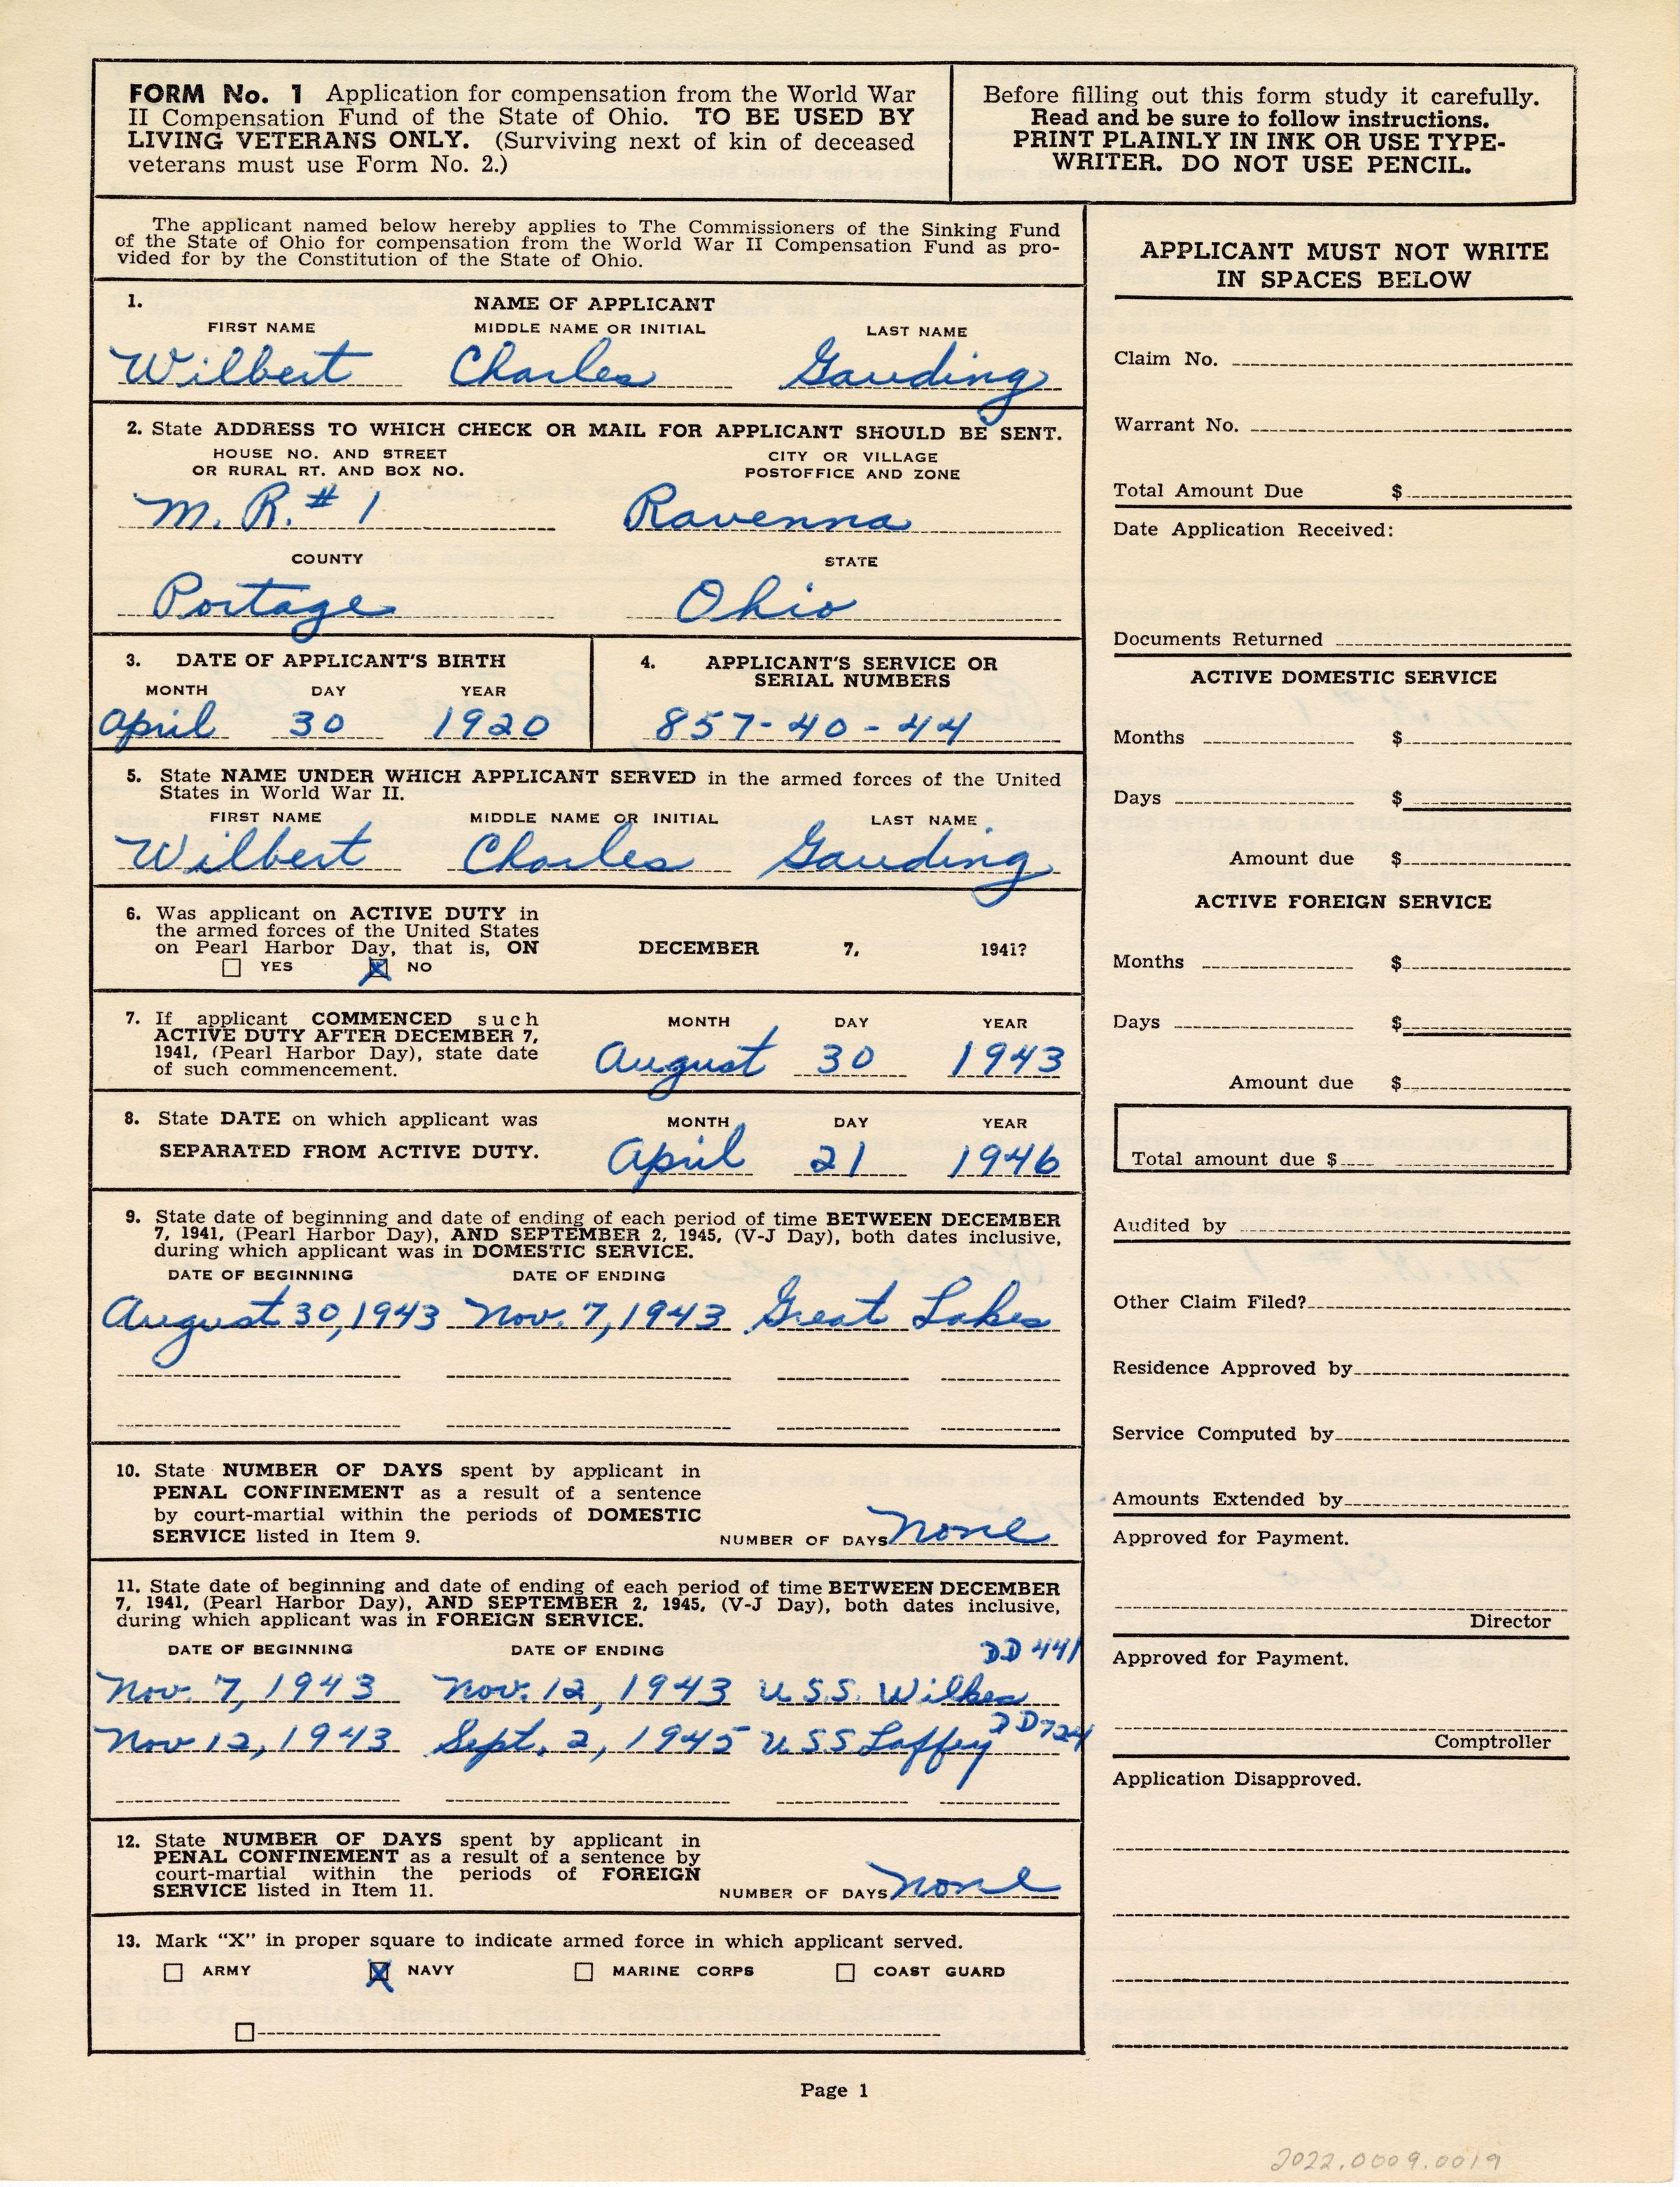 FORM No. 1 Application for compensation from the World War
II Compensation Fund of the State of Ohio. TO BE USED BY
LIVING VETERANS ONLY. (Surviving next of kin of deceased
veterans must use Form No. 2.)
Before filling out this form study it carefully.
Read and be sure to follow instructions.
PRINT PLAINLY IN INK OR USE TYPE-
WRITER. DO NOT USE PENCIL.
The applicant named below hereby applies to The Commissioners of the Sinking Fund
of the State of Ohio for compensation from the World War II Compensation Fund as pro-
vided for by the Constitution of the State of Ohio.
1. NAME OF APPLICANT
FIRST NAME MIDDLE NAME OR INITIAL LAST NAME
Wilbert Charles Gauding
2. State ADDRESS TO WHICH CHECK OR MAIL FOR APPLICANT SHOULD BE SENT.
HOUSE NO. AND STREET CITY OR VILLAGE
OR RURAL RT. AND BOX NO. POSTOFFICE AND ZONE
M. R. # 1 Ravenna
COUNTY STATE
Portage Ohio
3. DATE OF APPLICANT'S BIRTH
MONTH DAY YEAR
April 30 1920
4. APPLICANT'S SERVICE OR
SERIAL NUMBERS
857-40-44
5. State NAME UNDER WHICH APPLICANT SERVED in the armed forces of the United
States in World War II.
FIRST NAME MIDDLE NAME OR INITIAL LAST NAME
Wilbert Charles Gauding
6. Was applicant on ACTIVE DUTY in
the armed forces of the United States
on Pearl Harbor Day, that is, ON DECEMBER 7, 1941?
☐ YES ☒ NO
7. If applicant COMMENCED such
ACTIVE DUTY AFTER DECEMBER 7,
1941, (Pearl Harbor Day), state date
of such commencement.
MONTH DAY YEAR
August 30 1943
8. State DATE on which applicant was
SEPARATED FROM ACTIVE DUTY.
MONTH DAY YEAR
April 21 1946
9. State date of beginning and date of ending of each period of time BETWEEN DECEMBER
7, 1941, (Pearl Harbor Day), AND SEPTEMBER 2, 1945, (V-J Day), both dates inclusive,
during which applicant was in DOMESTIC SERVICE.
DATE OF BEGINNING DATE OF ENDING
August 30, 1943 Nov. 7, 1943 Great Lakes
10. State NUMBER OF DAYS spent by applicant in
PENAL CONFINEMENT as a result of a sentence
by court-martial within the periods of DOMESTIC
SERVICE listed in Item 9. NUMBER OF DAYS none
11. State date of beginning and date of ending of each period of time BETWEEN DECEMBER
7, 1941, (Pearl Harbor Day), AND SEPTEMBER 2, 1945, (V-J Day), both dates inclusive,
during which applicant was in FOREIGN SERVICE.
DATE OF BEGINNING DATE OF ENDING DD 441
Nov. 7, 1943 Nov. 12, 1943 U.S.S. Wilkes
Nov 12, 1943 Sept. 2, 1945 U.S S Laffey DD724
12. State NUMBER OF DAYS spent by applicant in
PENAL CONFINEMENT as a result of a sentence by
court-martial within the periods of FOREIGN
SERVICE listed in Item 11. NUMBER OF DAYS none
13. Mark "X" in proper square to indicate armed force in which applicant served.
☐ ARMY ☒ NAVY ☐ MARINE CORPS ☐ COAST GUARD
☐
APPLICANT MUST NOT WRITE
IN SPACES BELOW
Claim No.
Warrant No.
Total Amount Due $
Date Application Received:
Documents Returned
ACTIVE DOMESTIC SERVICE
Months $
Days $
Amount due $
ACTIVE FOREIGN SERVICE
Months $
Days $
Amount due $
Total amount due $
Audited by
Other Claim Filed?
Residence Approved by
Service Computed by
Amounts Extended by
Approved for Payment.
Director
Approved for Payment.
Comptroller
Application Disapproved.
Page 1
2022.0009.0019